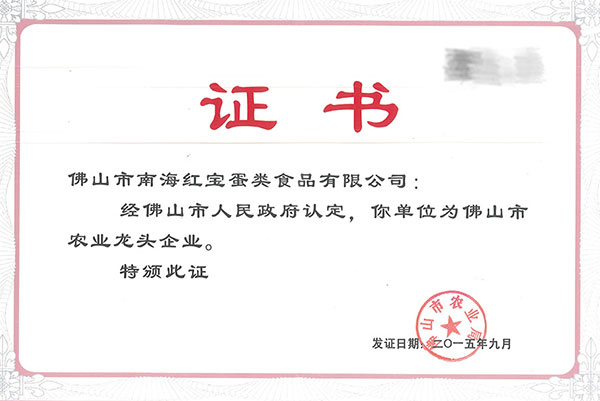 证书
佛山市南海红宝蛋类食品有限公司：
经佛山市人民政府认定，你单位为佛山市
农业龙头企业。
特颁此证
佛山市农业局
发证日期：二〇一五年九月